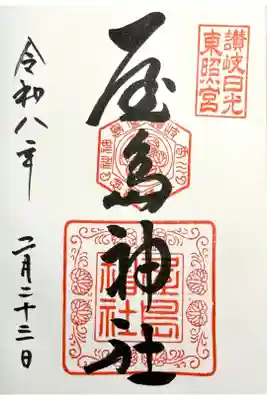 讃岐日光
東照宮
屋島神社
屋島
神社
令和八年
二月二十三日